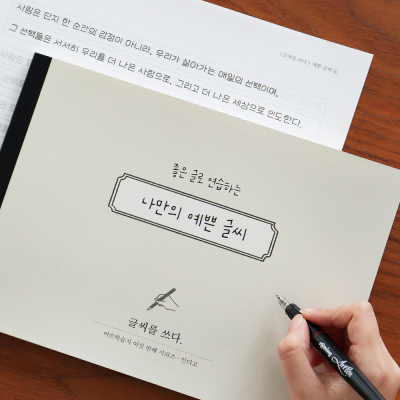 사람은 단지 한 순간의 감정이 아니라, 우리가 살아가는 매일의 선택이며,
그 선택들은 서서히 우리를 더 나은 사람으로, 그리고 더 나은 세상으로 인도한다.
좋은 글로 연습하는
나만의 예쁜 글씨
글씨을 쓰다.